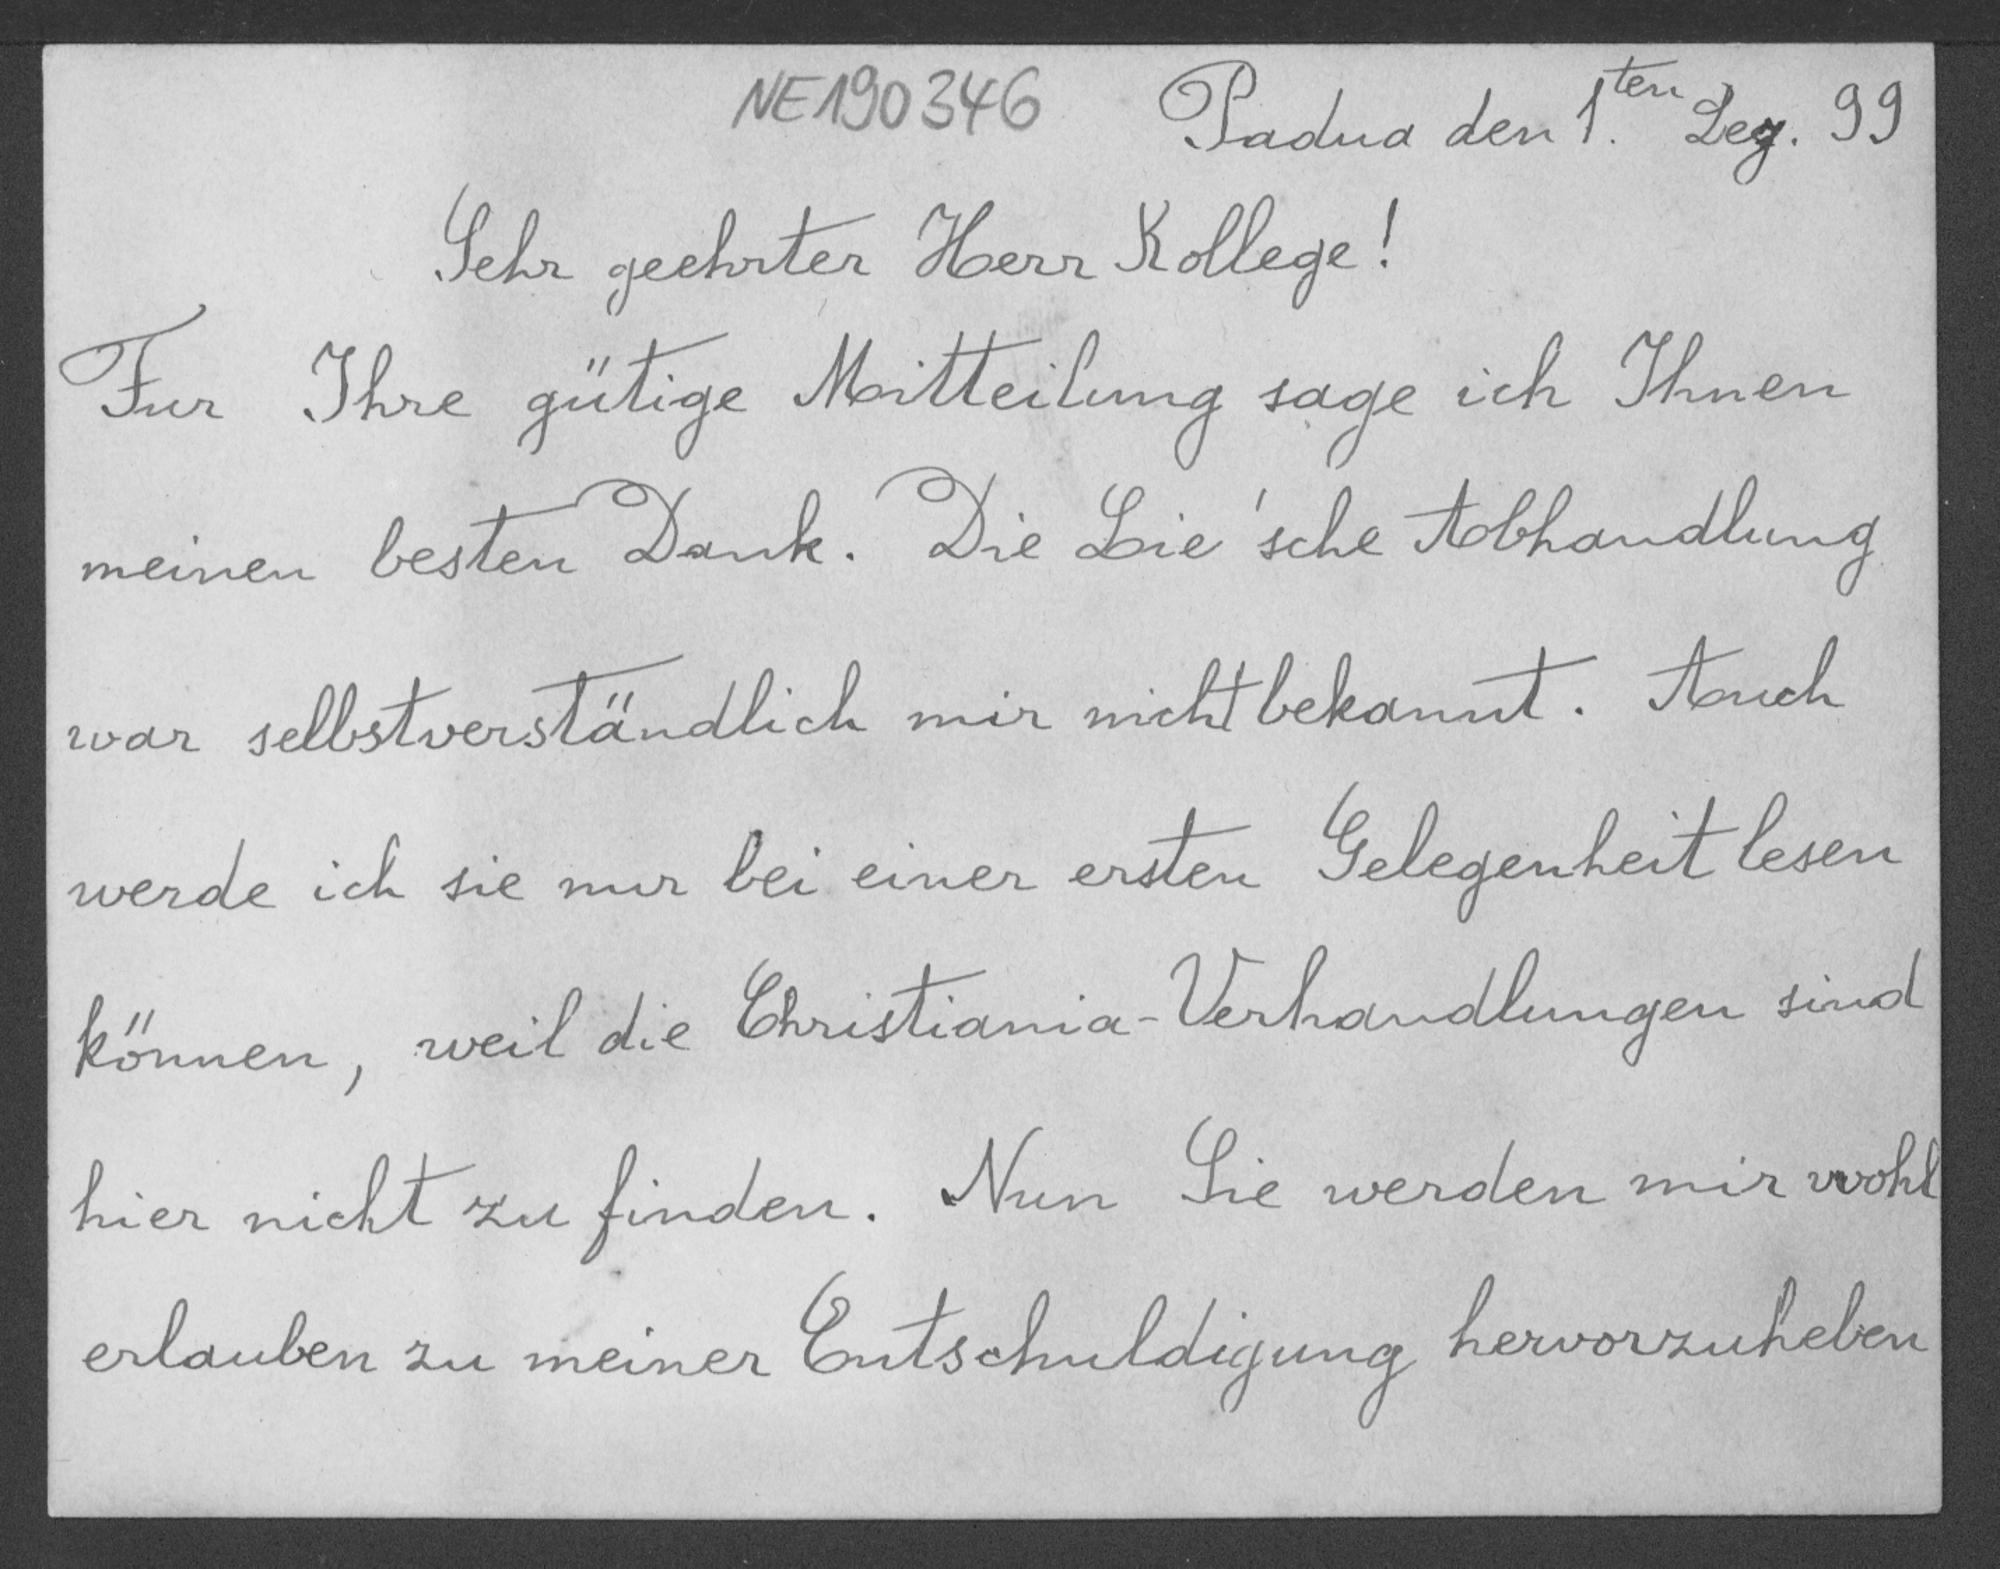 NE190346
Padua den 1.ten Dez. 99
Sehr geehrter Herr Kollege!
Fur Ihre gütige Mitteilung sage ich Ihnen
meinen besten Dank. Die Lie'sche Abhandlung
war selbstverständlich mir nicht bekannt. Auch
werde ich sie nur bei einer ersten Gelegenheit lesen
können, weil die Christiania-Verhandlungen sind
hier nicht zu finden. Nun Sie werden mir wohl
erlauben zu meiner Entschuldigung hervorzuheben